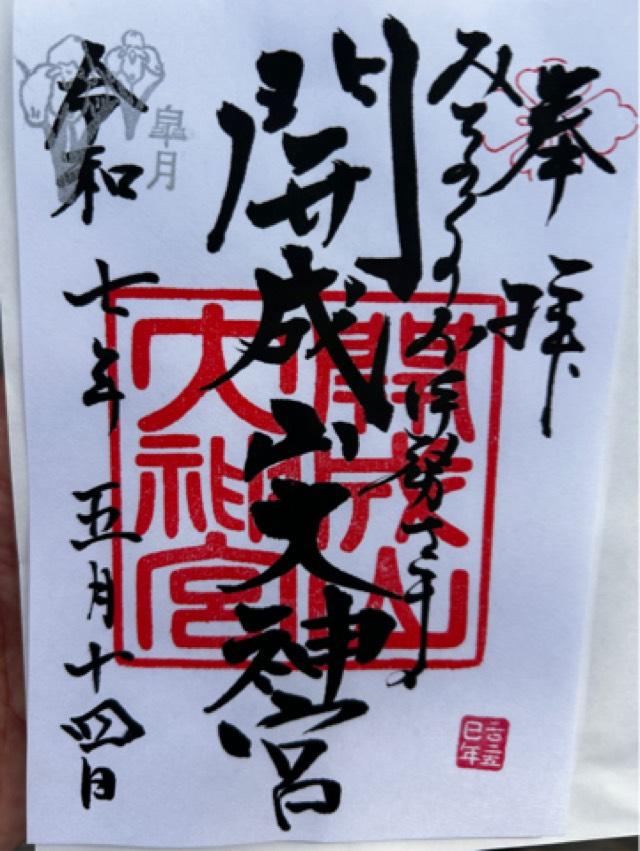 奉拝
みちのくのお伊勢さま
開成山大神宮
令和七年五月十四日
皐月
開成山
大神宮
二〇二五
巳年